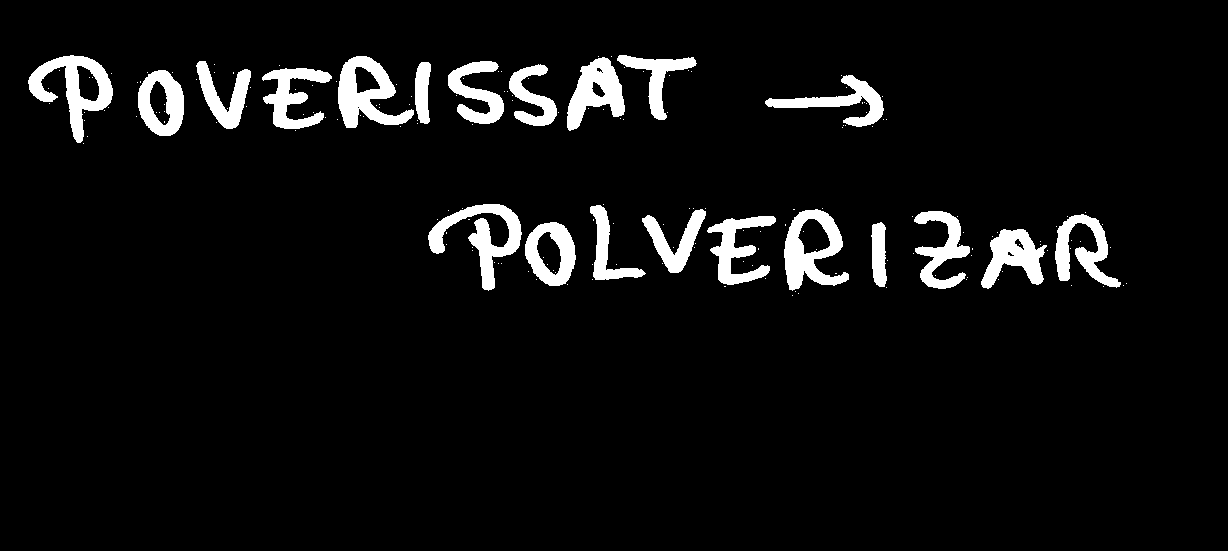 POVERISSAT →
POLVERIZAR